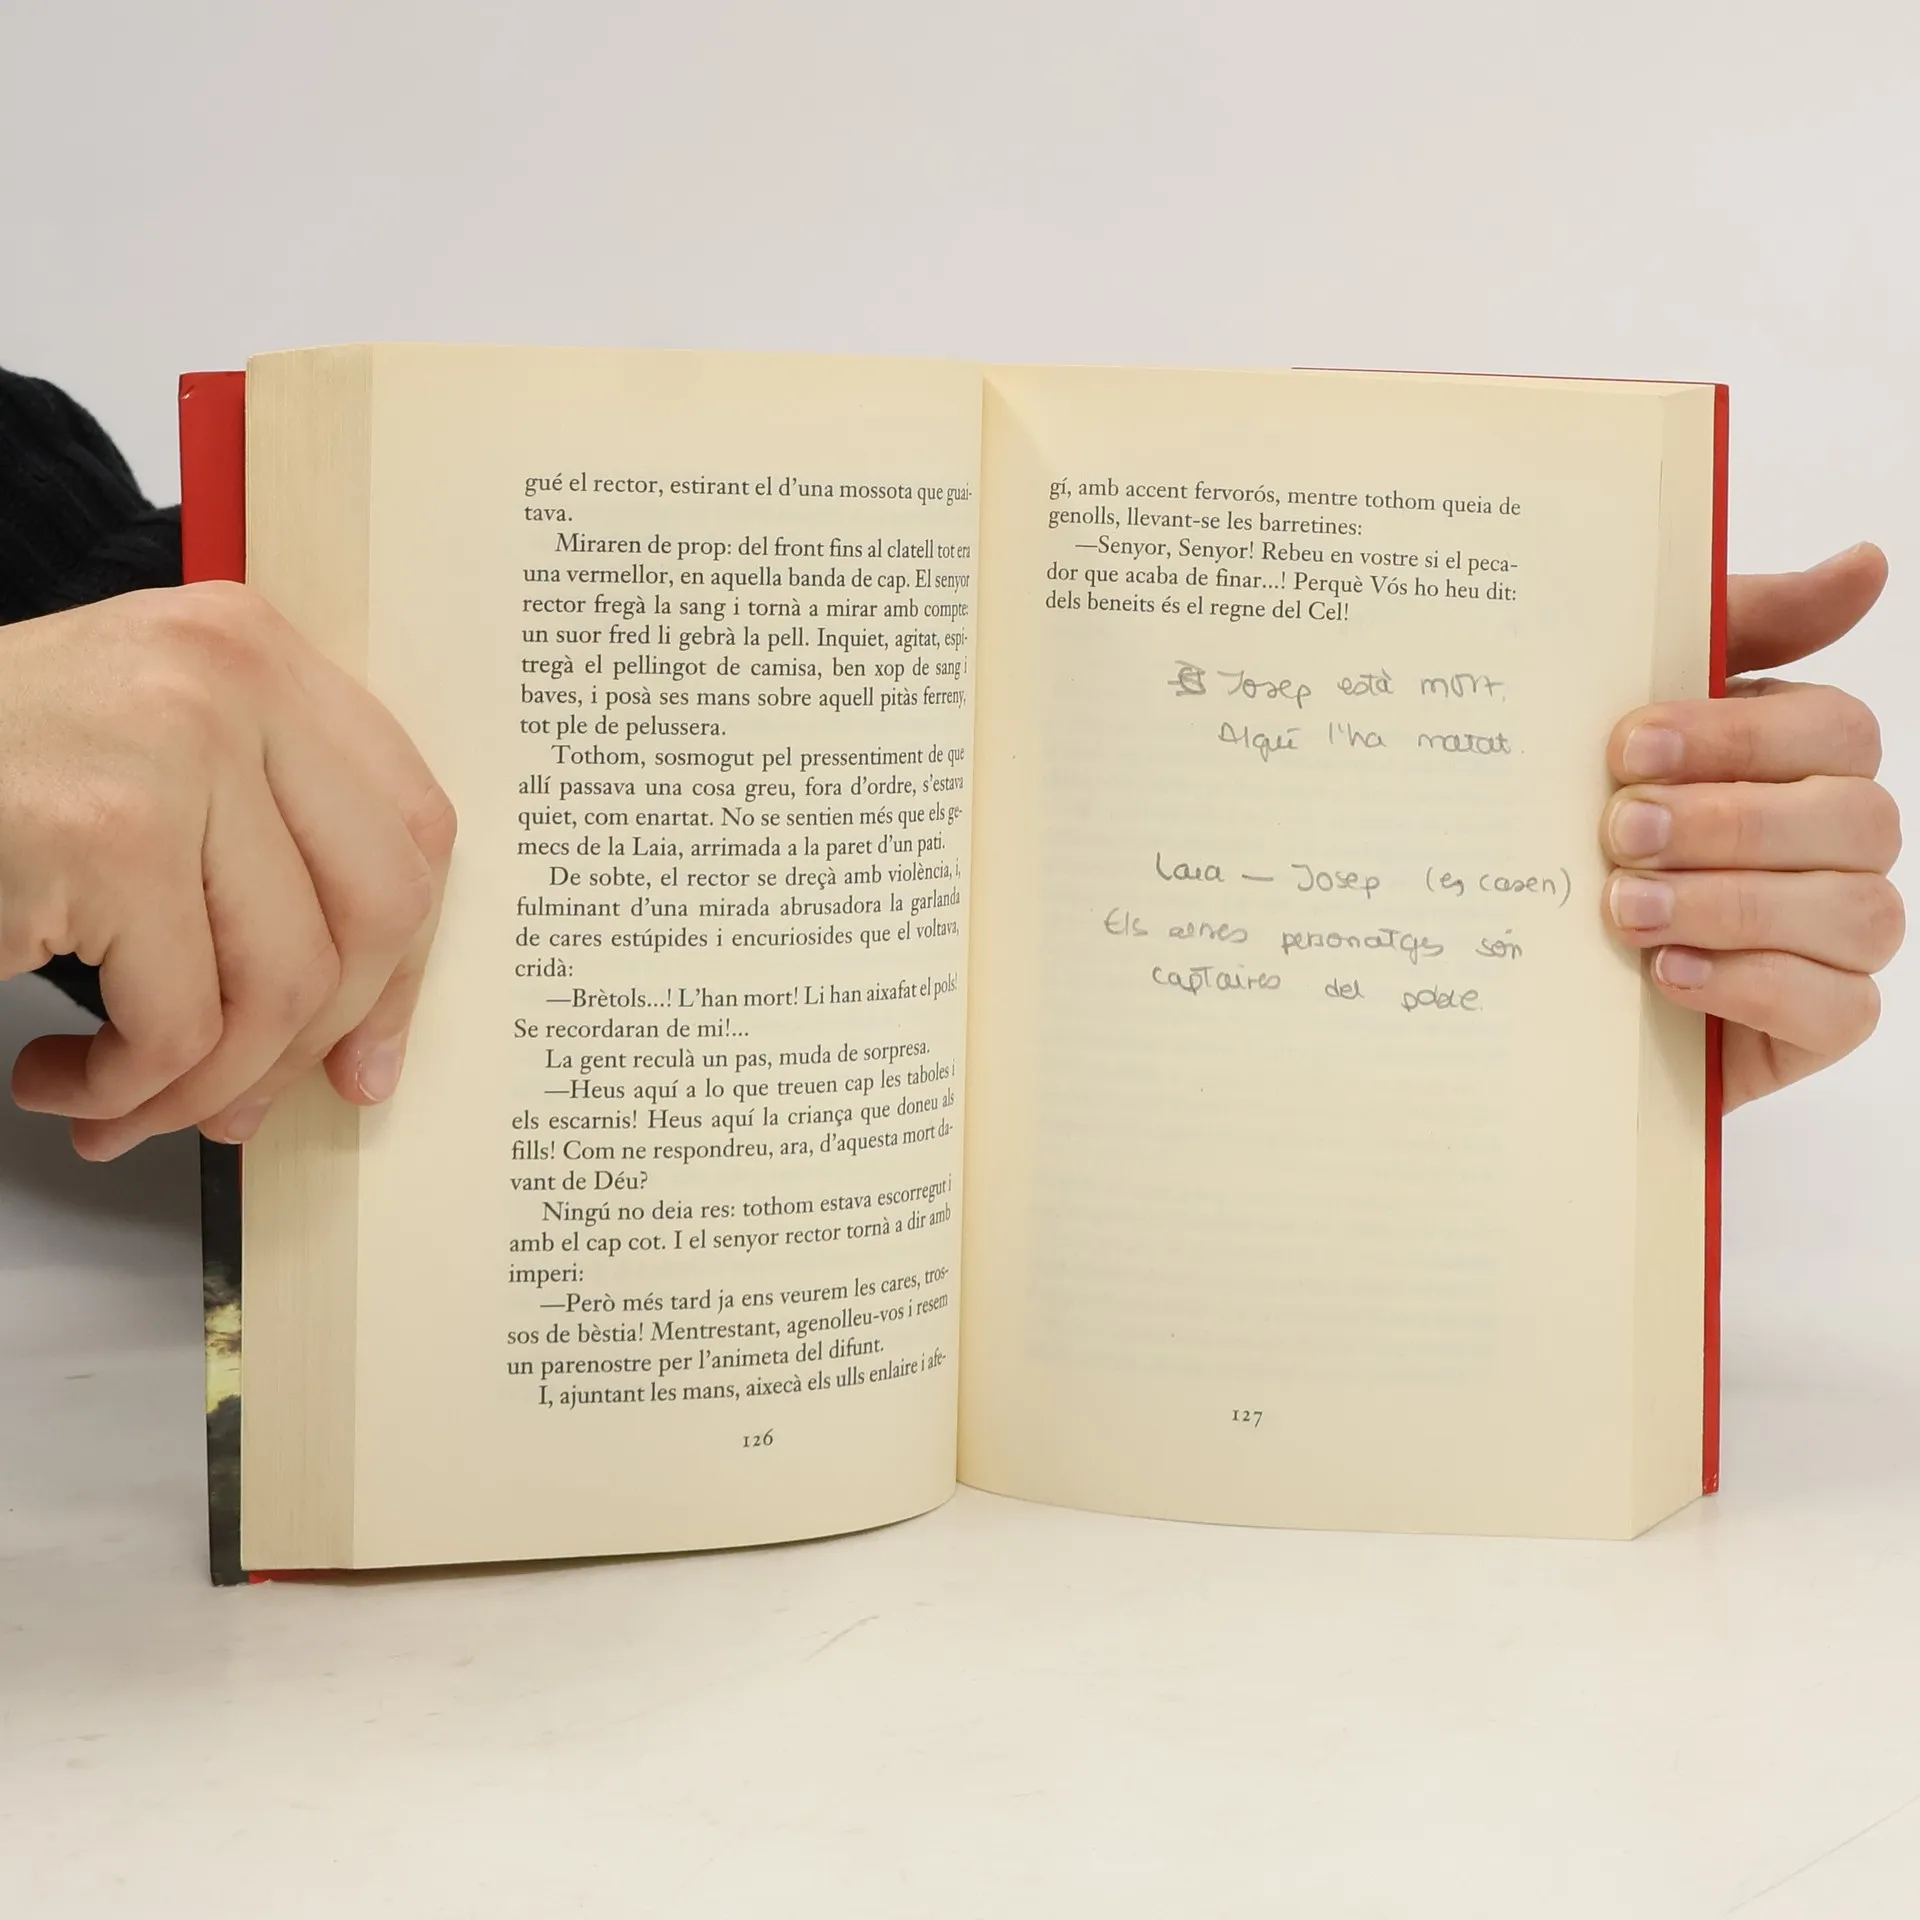 gué el rector, estirant el d'una mossota que guai-
tava.
Miraren de prop: del front fins al clatell tot era
una vermellor, en aquella banda de cap. El senyor
rector fregà la sang i tornà a mirar amb compte:
un suor fred li gebrà la pell. Inquiet, agitat, espi-
tregà el pellingot de camisa, ben xop de sang i
baves, i posà ses mans sobre aquell pitàs ferreny,
tot ple de pelussera.
Tothom, sosmogut pel pressentiment de que
allí passava una cosa greu, fora d'ordre, s'estava
quiet, com enartat. No se sentien més que els ge-
mecs de la Laia, arrimada a la paret d'un pati.
De sobte, el rector se dreçà amb violència, i,
fulminant d'una mirada abrusadora la garlanda
de cares estúpides i encuriosides que el voltava,
cridà:
—Brètols...! L'han mort! Li han aixafat el pols!
Se recordaran de mi!...
La gent reculà un pas, muda de sorpresa.
—Heus aquí a lo que treuen cap les taboles i
els escarnis! Heus aquí la criança que doneu als
fills! Com ne respondreu, ara, d'aquesta mort da-
vant de Déu?
Ningú no deia res: tothom estava escorregut i
amb el cap cot. I el senyor rector tornà a dir amb
imperi:
—Però més tard ja ens veurem les cares, tros-
sos de bèstia! Mentrestant, agenolleu-vos i resem
un parenostre per l'animeta del difunt.
I, ajuntant les mans, aixecà els ulls enlaire i afe-
126
gí, amb accent fervorós, mentre tothom queia de
genolls, llevant-se les barretines:
—Senyor, Senyor! Rebeu en vostre si el peca-
dor que acaba de finar...! Perquè Vós ho heu dit:
dels beneits és el regne del Cel!
Josep està mort.
Algú l'ha matat.
Laia — Josep (es casen)
Els altres personatges són
captaires del poble.
127